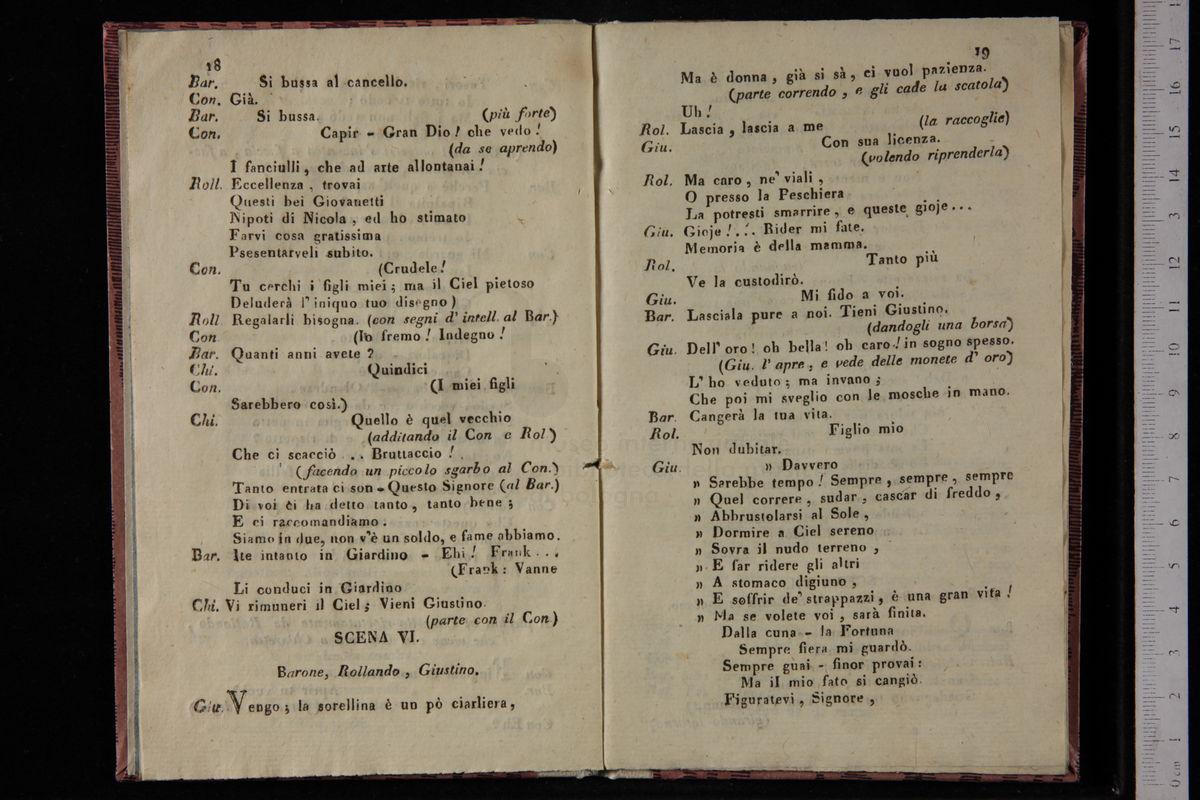 18
Bar. Si bussa al cancello.
Con. Già.
Bar. Si bussa. (più forte)
Con. Capir - Gran Dio! che vedo!
(da se aprendo)
I fanciulli, che ad arte allontanai!
Roll. Eccellenza, trovai
Questi bei Giovanetti
Nipoti di Nicola, ed ho stimato
Farvi cosa gratissima
Psesentarveli subito.
Con. (Crudele!
Tu cerchi i figli miei; ma il Ciel pietoso
Deluderà l' iniquo tuo disegno)
Roll Regalarli bisogna. (con segni d' intell. al Bar.)
Con (Io fremo! Indegno!
Bar. Quanti anni avete?
Chi. Quindici
Con. (I miei figli
Sarebbero così.)
Chi. Quello è quel vecchio
(additando il Con e Rol)
Che ci scacciò .. Bruttaccio!
(facendo un piccolo sgarbo al Con.)
Tanto entrata ci son - Questo Signore (al Bar.)
Di voi ci ha detto tanto, tanto bene;
E ci raccomandiamo.
Siamo in due, non v'è un soldo, e fame abbiamo.
Bar. Ite intanto in Giardino - Ehi! Frank...
(Frank: Vanne
Li conduci in Giardino
Chi. Vi rimuneri il Ciel; Vieni Giustino.
(parte con il Con)
SCENA VI.
Barone, Rollando, Giustino.
Giu. Vengo; la sorellina è un pò ciarliera,
19
Ma è donna, già si sà, ci vuol pazienza.
(parte correndo, e gli cade la scatola)
Uh!
Rol. Lascia, lascia a me (la raccoglie)
Giu. Con sua licenza.
(volendo riprenderla)
Rol. Ma caro, ne' viali,
O presso la Peschiera
La potresti smarrire, e queste gioje...
Giu. Gioje!... Rider mi fate.
Memoria è della mamma.
Rol. Tanto più
Ve la custodirò.
Giu. Mi fido a voi.
Bar. Lasciala pure a noi. Tieni Giustino.
(dandogli una borsa)
Giu. Dell' oro! oh bella! oh caro! in sogno spesso.
(Giu. l' apre, e vede delle monete d' oro)
L' ho veduto; ma invano;
Che poi mi sveglio con le mosche in mano.
Bar. Cangerà la tua vita.
Rol. Figlio mio
Non dubitar.
Giu. » Davvero
» Sarebbe tempo! Sempre, sempre, sempre
» Quel correre, sudar, cascar di freddo,
» Abbrustolarsi al Sole,
» Dormire a Ciel sereno
» Sovra il nudo terreno,
» E far ridere gli altri
» A stomaco digiuno,
» E soffrir de' strappazzi, è una gran vita!
» Ma se volete voi, sarà finita.
Dalla cuna - la Fortuna
Sempre fiera mi guardò.
Sempre guai - finor provai:
Ma il mio fato si cangiò.
Figuratevi, Signore,